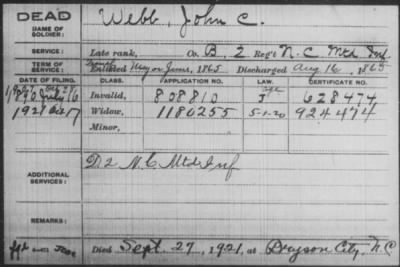 DEAD Webb, John C.
NAME OF SOLDIER:
SERVICE: Late rank, Co. B, 2 Reg't N.C. Mtd. Inf.
TERM OF SERVICE: Enlisted May or June, 1865 Discharged Aug 16, 1865
DATE OF FILING: CLASS. APPLICATION NO. LAW. CERTIFICATE NO.
1890 July Invalid, 808810 628474
1921 Oct 17 Widow, 1180255 5-1-20 924474
Minor,
D. 2 N.C. Mtd Inf
ADDITIONAL SERVICES:
REMARKS:
Died Sept. 27, 1921, at Bryson City, N.C.